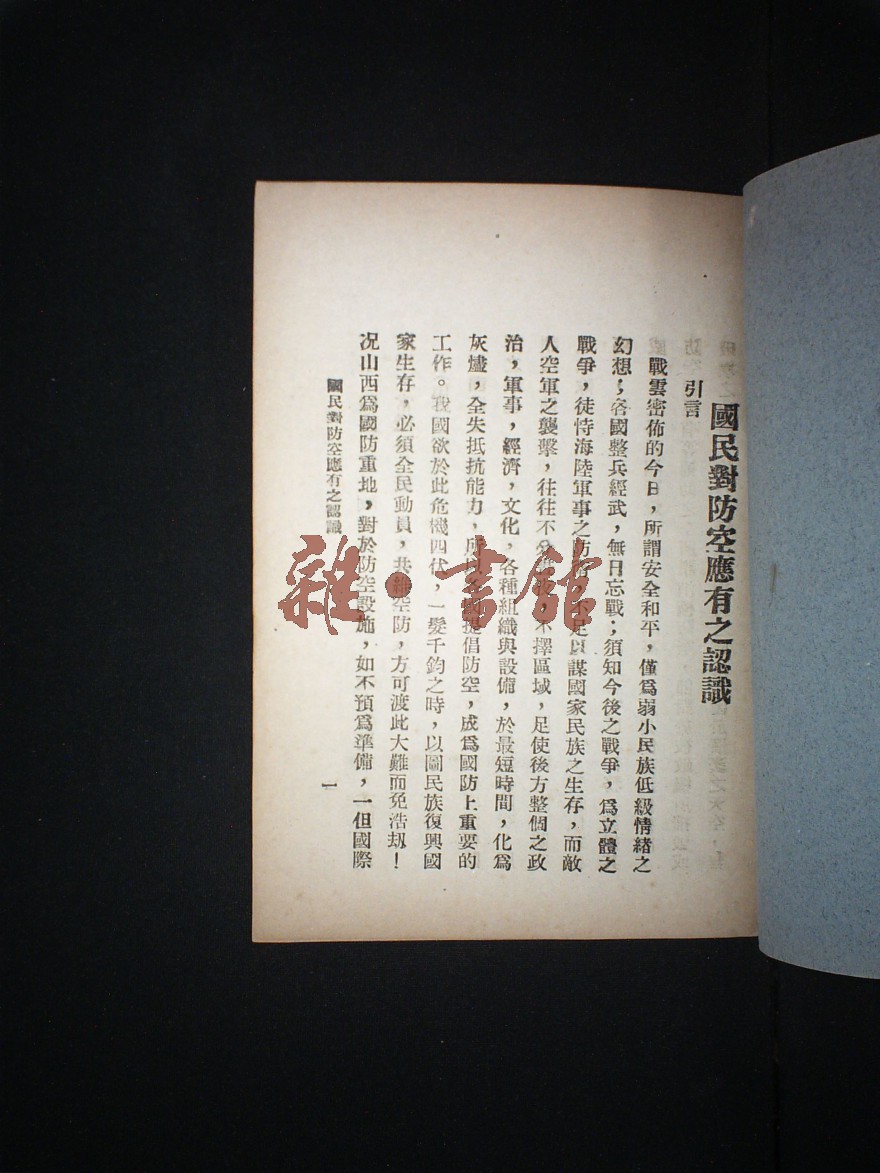 國民對防空應有之認識
引言
戰雲密佈的今日，所謂安全和平，僅爲弱小民族低級情緒之
幻想；各國整兵經武，無日忘戰；須知今後之戰爭，爲立體之
戰爭，徒恃海陸軍事之防衛，不足以謀國家民族之生存，而敵
人空軍之襲擊，往往不分 不擇區域，足使後方整個之政
治，軍事，經濟，文化，各種組織與設備，於最短時間，化爲
灰燼，全失抵抗能力，所以各國提倡防空，成爲國防上重要的
工作。我國欲於此危機四伏，一髮千鈞之時，以圖民族復興國
家生存，必須全民動員，共維空防，方可渡此大難而免浩刼！
况山西爲國防重地，對於防空設施，如不預爲準備，一但國際
國民對防空應有之認識
一
雜·書館